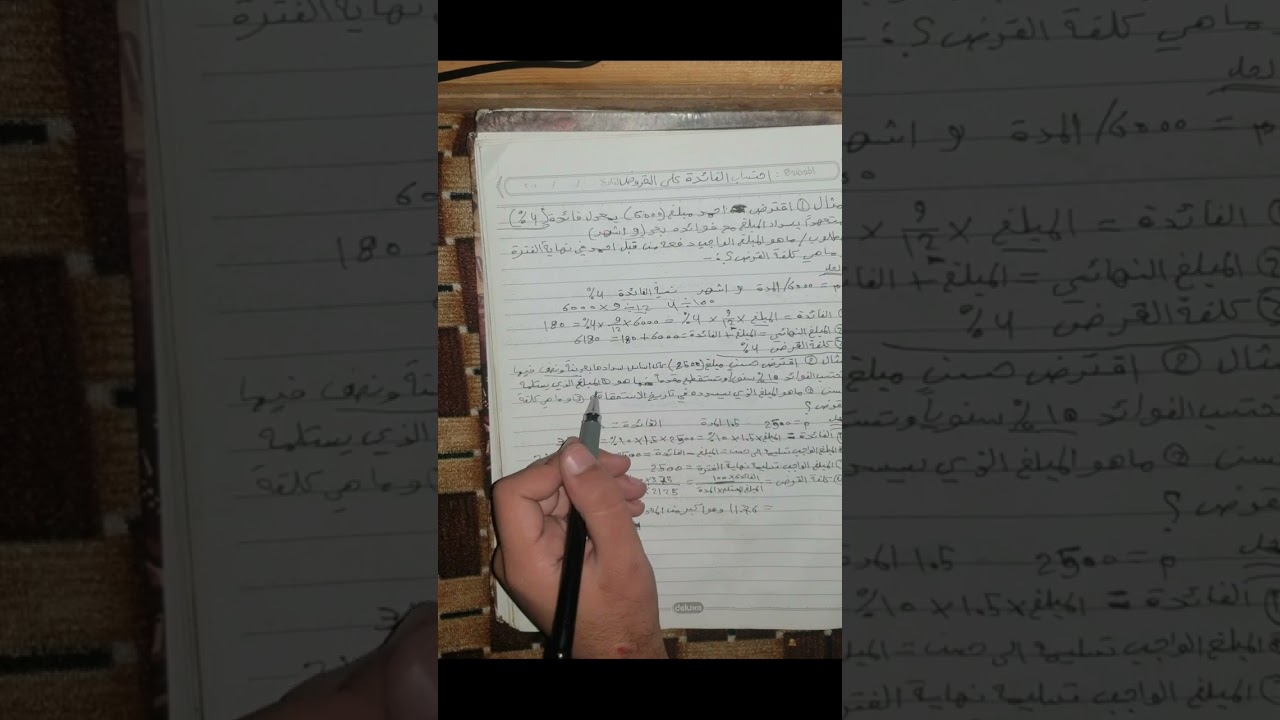 الموضوع : احتساب الفائدة على القروض التاريخ / / ٢٠
مثال ① اقترض احمد مبلغ (6000) بمعدل فائدة (4%)
متعهداً بسداد المبلغ مع فوائده بعد (9 اشهر)
المطلوب / ماهو المبلغ الواجب دفعه من قبل احمد في نهاية الفترة
وماهي كلفة القرض ؟ :-
الحل
م = 6000 / المدة 9 اشهر نسبة الفائدة 4%
6000 × 9 ÷ 12 4 ÷ 100
① الفائدة = المبلغ × 9/12 × 4% = 6000 × 9/12 × 4% = 180
② المبلغ النهائي = المبلغ + الفائدة = 6000 + 180 = 6180
③ كلفة القرض 4%
مثال ② اقترض حسني مبلغ (2500) على اساس سدادها بعد سنة ونصف فيها
تحتسب الفوائد 10% سنوياً وتستقطع مقدما ماهو ① المبلغ الذي يستلمه
حسني ② ماهو المبلغ الذي سيسدده في تاريخ الاستحقاق ③ وماهي كلفة
القرض ؟
الحل م = 2500 1.5 المدة الفائدة =
① الفائدة = المبلغ × 1.5 × 10% = 2500 × 1.5 × 10% =
② المبلغ الواجب تسليمه الى حسني = المبلغ - الفائدة = 2500
③ المبلغ الواجب تسليمه نهاية الفترة = 2500
④ كلفة القرض = الفائدة × 100 / المبلغ المستلم × المدة = × 375 / × 2125
= 11.76 وهو اكبر من
deluxe